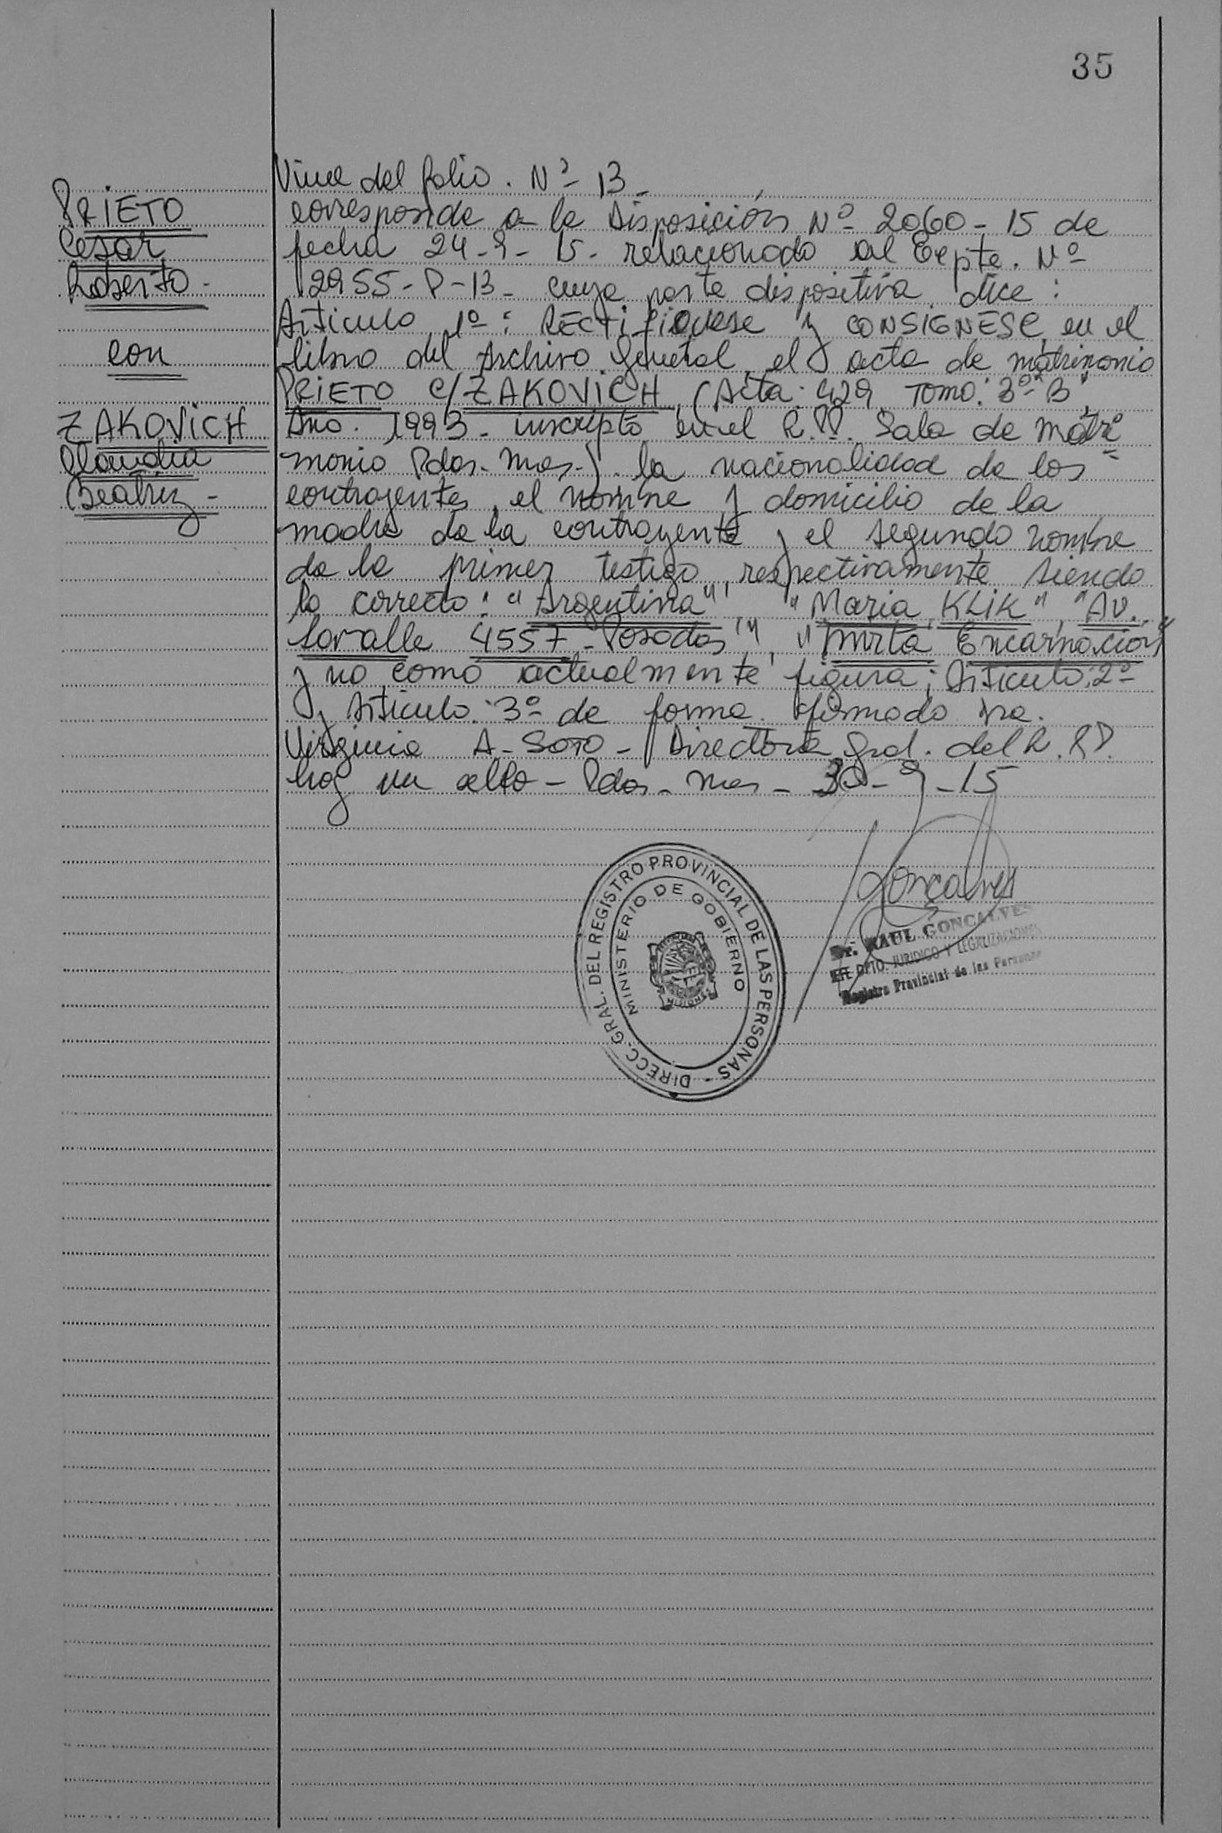 35
Viene del folio. Nº 13_
PRIETO
Cesar
Roberto-
con
ZAKOVICH
Claudia
Beatriz-
corresponde a la Disposición Nº 2060-15 de
fecha 24-9-15- relacionado al Expte. Nº
2955-P-13- cuya parte dispositiva dice:
Articulo 1º: RECTIFIQUESE y CONSIGNESE, en el
libro del Archivo General, el acta de matrimonio
PRIETO C/ZAKOVICH (Acta: 429 Tomo: 3º"B"
Año. 1993- inscripto en el R.P.P. Sala de Matri=
monio Pdas-Mnes-). la nacionalidad de los
contrayentes, el nombre y domicilio de la
madre de la contrayente y el segundo nombre
de la primer testigo, respectivamente siendo
lo correcto: "Argentina" "Maria KLIK", "AV.
Lavalle 4557-Posadas", "Mirta Encarnación"
y no como actualmente figura; Articulo: 2º
y Articulo: 3º de forma. Firmado Dra.
Virginia A-SOTO- Directora Gral. del R.P.P.
hay un sello- Pdas- Mnes- 30-9-15
Goncalves
Dr. RAUL GONCALVES
JEFE DPTO. JURIDICO Y LEGALIZACIONES
Registro Provincial de las Personas
DIRECC. GRAL. DEL REGISTRO PROVINCIAL DE LAS PERSONAS -
MINISTERIO DE GOBIERNO
MISIONES